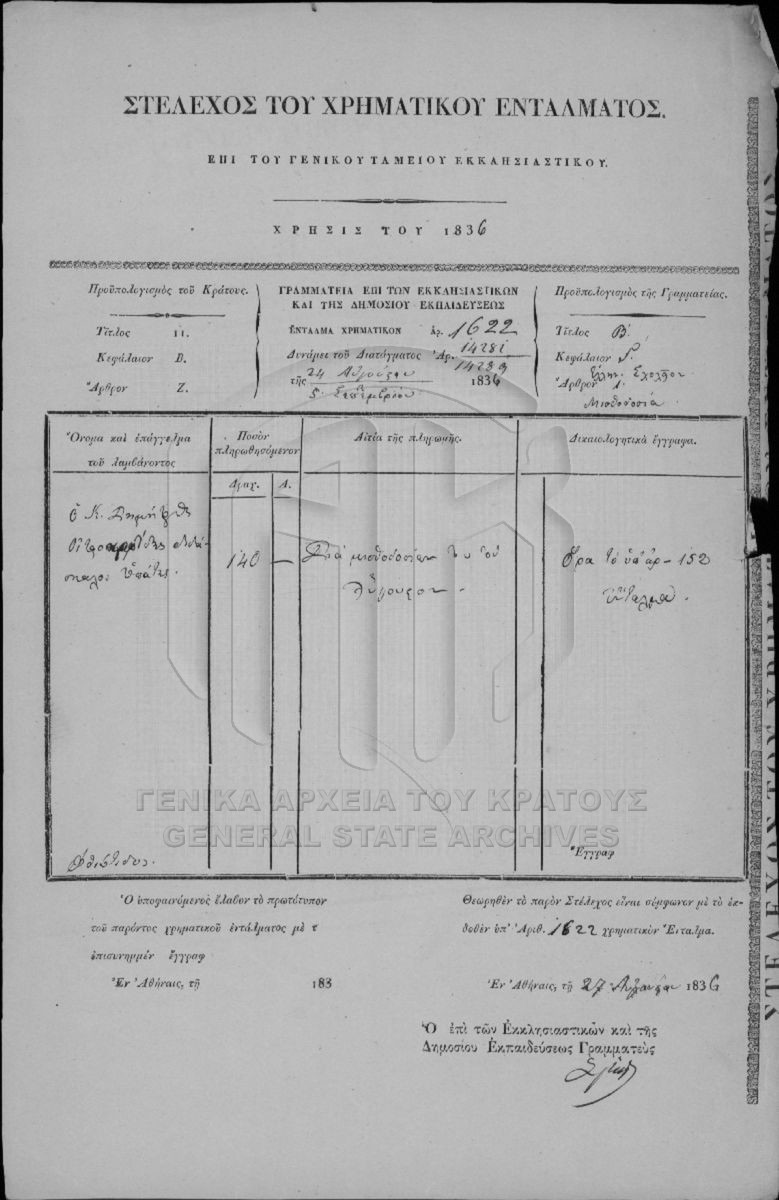 ΣΤΕΛΕΧΟΣ ΤΟΥ ΧΡΗΜΑΤΙΚΟΥ ΕΝΤΑΛΜΑΤΟΣ.
ΕΠΙ ΤΟΥ ΓΕΝΙΚΟΥ ΤΑΜΕΙΟΥ ΕΚΚΛΗΣΙΑΣΤΙΚΟΥ.
ΧΡΗΣΙΣ ΤΟΥ 1836
Προϋπολογισμὸς τοῦ Κράτους.
Τίτλος Π.
Κεφάλαιον Β.
Ἄρθρον Ζ.
ΓΡΑΜΜΑΤΕΙΑ ΕΠΙ ΤΩΝ ΕΚΚΛΗΣΙΑΣΤΙΚΩΝ
ΚΑΙ ΤΗΣ ΔΗΜΟΣΙΟΥ ΕΚΠΑΙΔΕΥΣΕΩΣ
ΕΝΤΑΛΜΑ ΧΡΗΜΑΤΙΚΟΝ ἀρ. 1622
Δυνάμει τοῦ Διατάγματος Ἀρ.
τῆς 24 Αὐγούστου 1836
5 Σεπτεμβρίου
Προϋπολογισμὸς τῆς Γραμματείας.
Τίτλος Β.
Κεφάλαιον
Ἄρθρον 1.
Μισθοδοσία
Ὄνομα καὶ ἐπάγγελμα
τοῦ λαμβάνοντος
Ποσὸν
πληρωθησόμενον
Δραχ. Λ.
Αἰτία τῆς πληρωμῆς.
Δικαιολογητικὰ ἔγγραφα.
ὁ Κ.
140 —
Διὰ μισθοδοσίαν του τοῦ
Αὐγούστου.
Ὅρα τὸ ὑπ' ἀρ. 152
ἔνταλμα.
Φθιώτιδος.
Ἔγγραφ
Ὁ ὑποφαινόμενος ἔλαβον τὸ πρωτότυπον
τοῦ παρόντος χρηματικοῦ ἐντάλματος μὲ τ
ἐπισυνημμέν ἔγγραφ
Ἐν Ἀθήναις, τῇ 183
Θεωρηθὲν τὸ παρὸν Στέλεχος εἶναι σύμφωνον μὲ τὸ ἐκ-
δοθὲν ὑπ' Ἀριθ. 1622 χρηματικὸν Ἔνταλμα.
Ἐν Ἀθήναις, τῇ 27 Αὐγούστου 1836
Ὁ ἐπὶ τῶν Ἐκκλησιαστικῶν καὶ τῆς
Δημοσίου Ἐκπαιδεύσεως Γραμματεὺς
ΓΕΝΙΚΑ ΑΡΧΕΙΑ ΤΟΥ ΚΡΑΤΟΥΣ
GENERAL STATE ARCHIVES